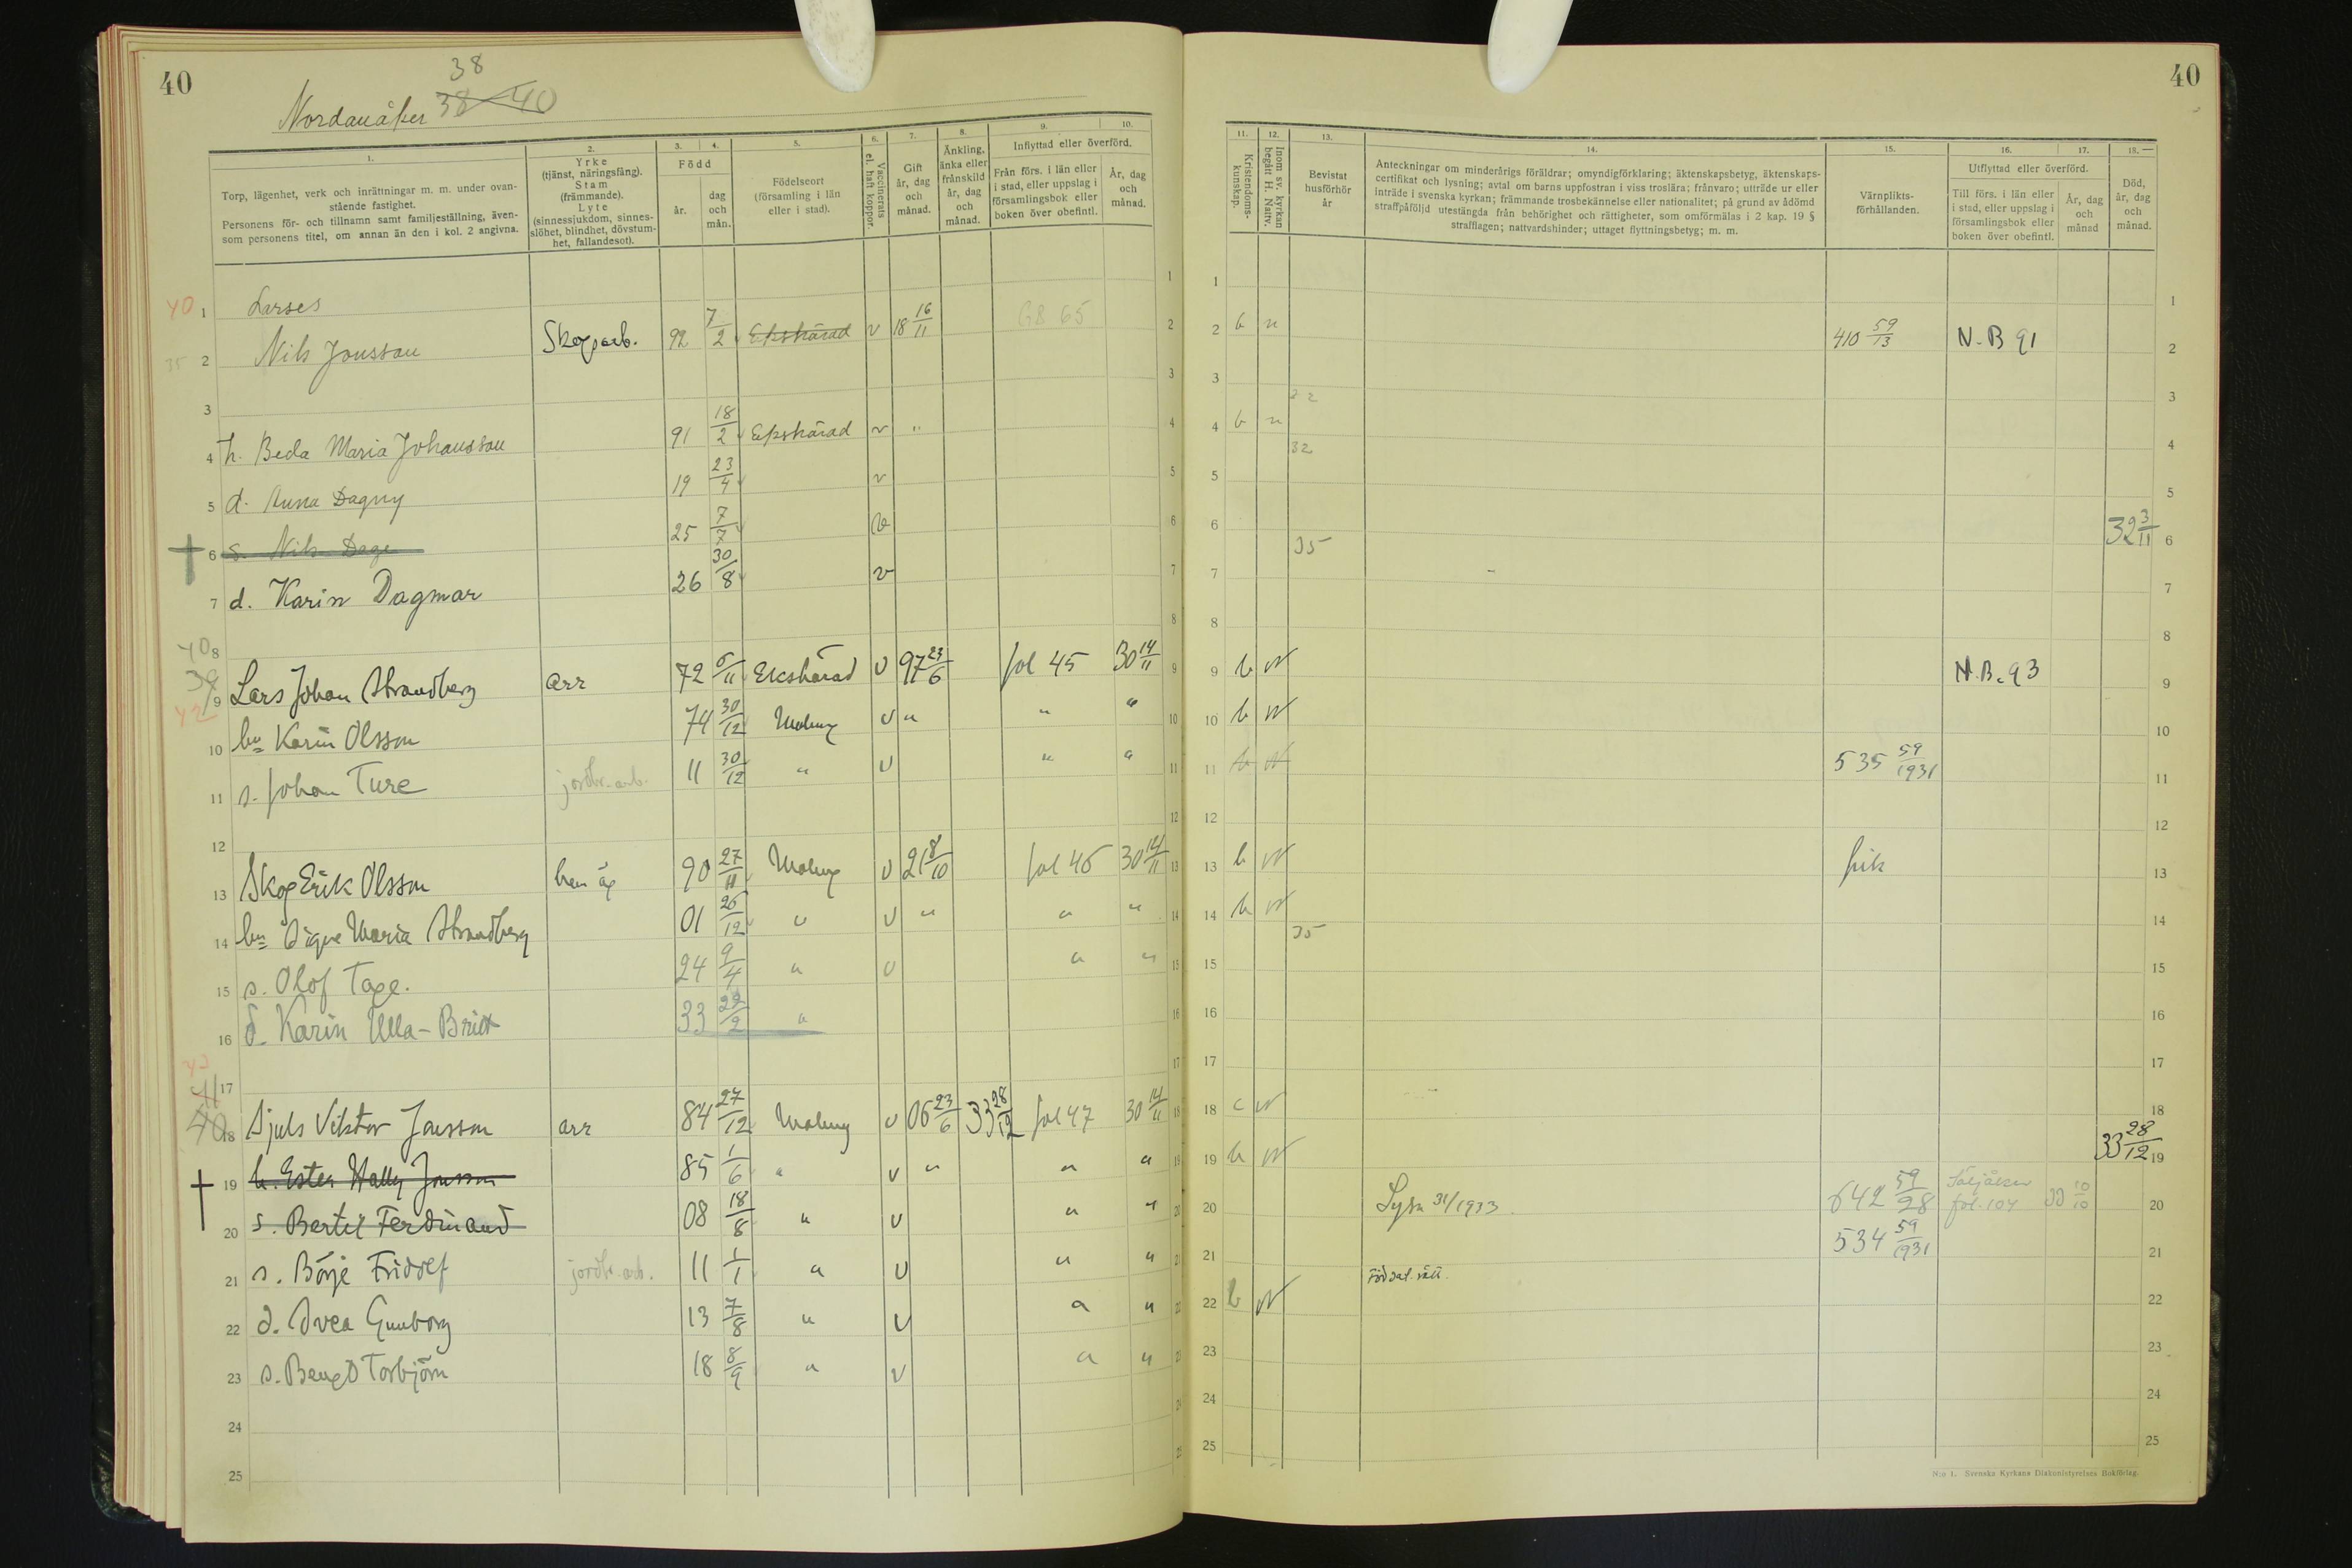 40
38
Nordanåker 38 40
1.
Torp, lägenhet, verk och inrättningar m. m. under ovan-
stående fastighet.
Personens för- och tillnamn samt familjeställning, även-
som personens titel, om annan än den i kol. 2 angivna.
2.
Yrke
(tjänst, näringsfång).
Stam
(främmande).
Lyte
(sinnessjukdom, sinnes-
slöhet, blindhet, dövstum-
het, fallandesot).
3. 4.
Född
år.
dag
och
mån.
5.
Födelseort
(församling i län
eller i stad).
6.
Vaccinerats
el. haft koppor.
7.
Gift
år, dag
och
månad.
8.
Änkling,
änka eller
frånskild
år, dag
och
månad.
9. 10.
Inflyttad eller överförd.
Från förs. i län eller
i stad, eller uppslag i
församlingsbok eller
boken över obefintl.
År, dag
och
månad.
40 1 Larses 1
35 2 Nils Jonsson Skogsarb. 92 7/2 Ekshärad v 18 16/11 GB 65 2
3 3
4 h. Beda Maria Johansson 91 18/2 Ekshärad v " 4
5 d. Anna Dagny 19 23/4 v 5
6 s. Nils Dage 25 7/7 v 6
7 d. Karin Dagmar 26 30/8 v 7
40 8 8
39 42 9 Lars Johan Strandberg arr 72 5/11 Ekshärad v 97 23/6 fol 45 30 14/11 9
10 hu Karin Olsson 74 30/12 Malung v " " " 10
11 s. Johan Ture jordbr.arb. 11 30/12 " v " " 11
12 12
13 Skog Erik Olsson hem äg 90 27/11 Malung v 21 8/10 fol 46 30 14/11 13
14 hu Signe Maria Strandberg 01 26/12 " v " " " 14
15 s. Olof Tage. 24 9/4 " v " " 15
16 d. Karin Ulla-Britt 33 22/2 " 16
42
41 17 17
40 18 Sjuls Viktor Jonsson arr 84 27/12 Malung v 06 23/6 33 28/12 fol 47 30 14/11 18
19 h. Ester Wally Jonsson 85 1/6 " v " " " 19
20 s. Bertil Ferdinand 08 18/8 " v " " 20
21 s. Börje Fridolf jordbr.arb. 11 1/1 " v " " 21
22 d. Svea Gunborg 13 7/8 " v " " 22
23 s. Bengt Torbjörn 18 8/9 " v " " 23
24 24
25 25
40
11.
Kristendoms-
kunskap.
12.
Inom sv. kyrkan
begått H. Nattv.
13.
Bevistat
husförhör
år
14.
Anteckningar om minderårigs föräldrar; omyndigförklaring; äktenskapsbetyg, äktenskaps-
certifikat och lysning; avtal om barns uppfostran i viss troslära; frånvaro; utträde ur eller
inträde i svenska kyrkan; främmande trosbekännelse eller nationalitet; på grund av ådömd
straffpåföljd utestängda från behörighet och rättigheter, som omförmälas i 2 kap. 19 §
strafflagen; nattvardshinder; uttaget flyttningsbetyg; m. m.
15.
Värnplikts-
förhållanden.
16. 17.
Utflyttad eller överförd.
Till förs. i län eller
i stad, eller uppslag i
församlingsbok eller
boken över obefintl.
År, dag
och
månad
18.
Död,
år, dag
och
månad.
1 1
2 b n 410 59/13 N.B 91 2
3 32 3
4 b n 32 4
5 5
6 35 32 3/11 6
7 7
8 8
9 b N N.B. 93 9
10 b N 10
11 b N 535 59/1931 11
12 12
13 b N frik 13
14 b N 35 14
15 15
16 16
17 17
18 c N 18
19 b N 33 28/12 19
20 Lysn 31/1933. 642 59/28 fol. 104 33 10/10 20
21 534 59/1931 21
22 b N 22
23 23
24 24
25 25
N:o 1. Svenska Kyrkans Diakonistyrelses Bokförlag.